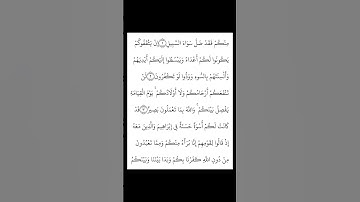 مِنكُمْ فَقَدْ ضَلَّ سَوَاءَ السَّبِيلِ ﴿١﴾ إِن يَثْقَفُوكُمْ
يَكُونُوا لَكُمْ أَعْدَاءً وَيَبْسُطُوا إِلَيْكُمْ أَيْدِيَهُمْ
وَأَلْسِنَتَهُم بِالسُّوءِ وَوَدُّوا لَوْ تَكْفُرُونَ ﴿٢﴾ لَن
تَنفَعَكُمْ أَرْحَامُكُمْ وَلَا أَوْلَادُكُمْ يَوْمَ الْقِيَامَةِ
يَفْصِلُ بَيْنَكُمْ وَاللَّهُ بِمَا تَعْمَلُونَ بَصِيرٌ ﴿٣﴾ قَدْ
كَانَتْ لَكُمْ أُسْوَةٌ حَسَنَةٌ فِي إِبْرَاهِيمَ وَالَّذِينَ مَعَهُ
إِذْ قَالُوا لِقَوْمِهِمْ إِنَّا بُرَآءُ مِنكُمْ وَمِمَّا تَعْبُدُونَ
مِن دُونِ اللَّهِ كَفَرْنَا بِكُمْ وَبَدَا بَيْنَنَا وَبَيْنَكُمُ